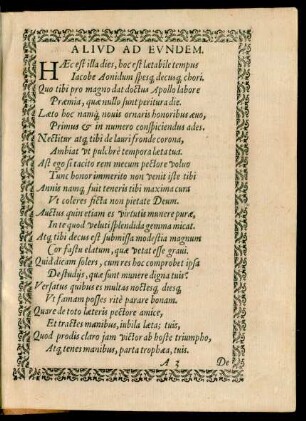 ALIVD AD EVNDEM.
HÆc est illa dies, hoc est lætabile tempus
Iacobe Aonidum spesq́; decusq́; chori.
Quo tibi pro magno dat doctus Apollo labore
Præmia, quæ nullo sunt peritura die.
Læto hoc namq́; nouis ornaris honoribus æuo,
Primus & in numero conspiciendus ades.
Nectitur atq́; tibi de lauri fronde corona,
Ambiat vt pulchrè tempora læta tua.
Ast ego si tacito rem mecum pectore voluo
Tunc honor immerito non venit iste tibi
Annis namq́; fuit teneris tibi maxima cura
Vt coleres ficta non pietate Deum.
Auctus quin etiam es virtutis munere puræ,
In te quod veluti splendida gemma micat.
Atq́; tibi decus est submissa modestia magnum
Cor fastu elatum, quæ vetat esse graui.
Quid dicam solers, cum res hoc comprobet ipsa
De studijs, quæ sunt munere digna tuis?
Versatus quibus es multas noctesq́; diesq́;
Vt famam posses ritè parare bonam.
Quare de toto læteris pectore amice,
Et tractes manibus, iubila læta; tuis,
Quod prodis claro jam victor ab hoste triumpho,
Atq́; tenes manibus, parta trophæa, tuis.
A 3 De